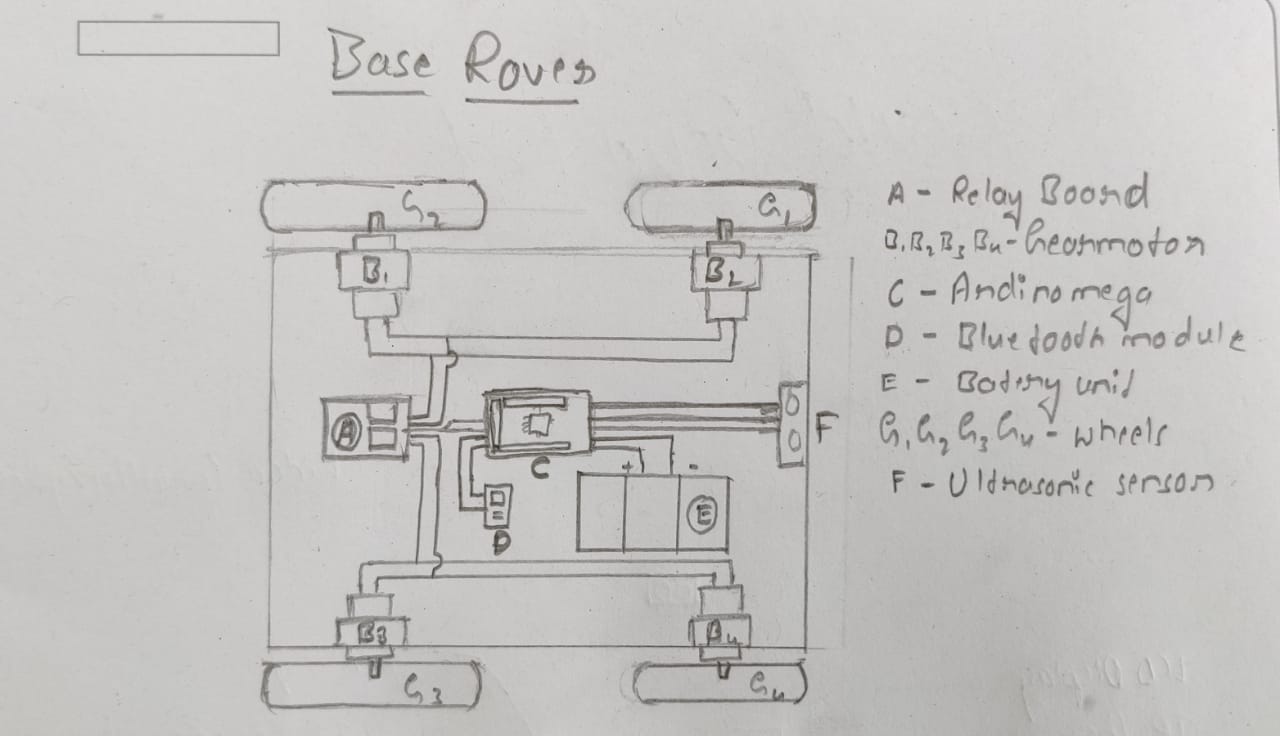 Base Rover
G2
G1
B1
B2
A
F
C
+ -
E
D
B3
B4
G3
G4
A - Relay Board
B1 B2 B3 B4 - Gearmotor
C - Ardino mega
D - Bluetooth module
E - Battery unit
G1 G2 G3 G4 - wheels
F - Ultrasonic sensor